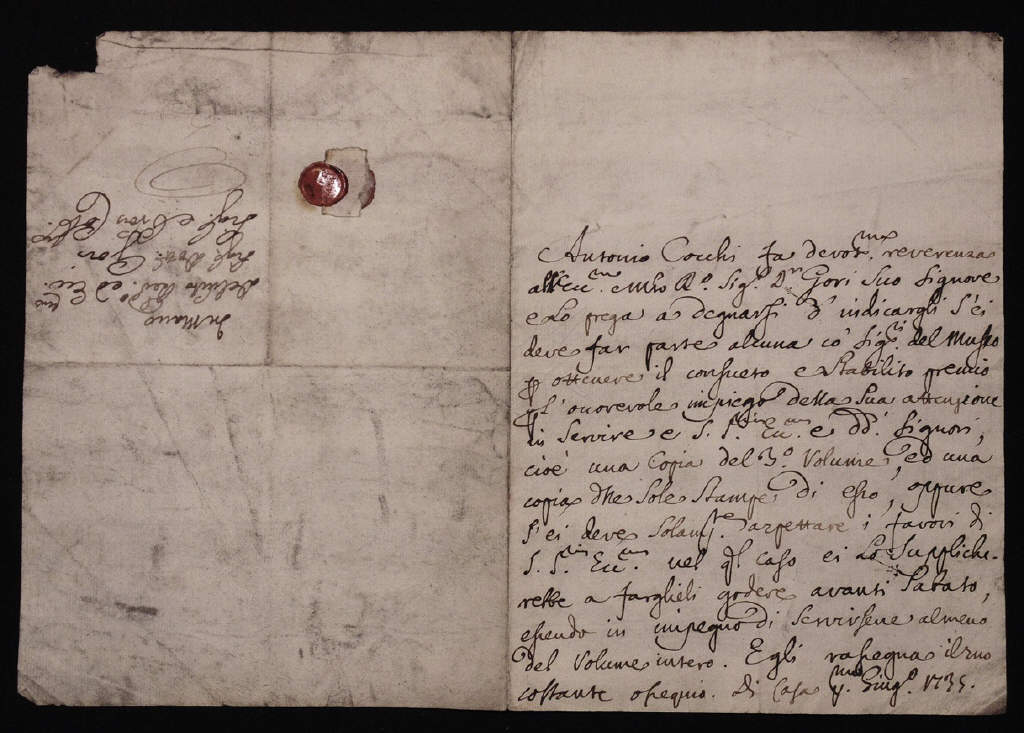 Antonio Cocchi fa devot.ma reverenza
all'Ecc.mo e Mto R.o Sig.r D.r Gori Suo Signore
e Lo prega a degnarsi d'indicargli s'ei
deve far parte alcuna co' Sig.ri del Museo
ꝑ ottenere il consueto e stabilito premio
ꝑ l'onorevole impiego della sua attenzione
in servire e S. S. Ecc.ma e dd.i Signori,
cioè una Copia del 3.o Volume, ed una
copia dlle Sole Stampe di esso, oppure
s'ei deve solam.te aspettare i favori di
S. S. Ecc.ma nel ql caso ei Lo Suppliche-
rebbe a farglieli godere avanti Sabato,
essendo in impegno di servirsene almeno
del Volume intero. Egli rassegna il suo
costante ossequio. Di Casa Giug.o 1735.
In Mano
Sig.r Dott. Gori